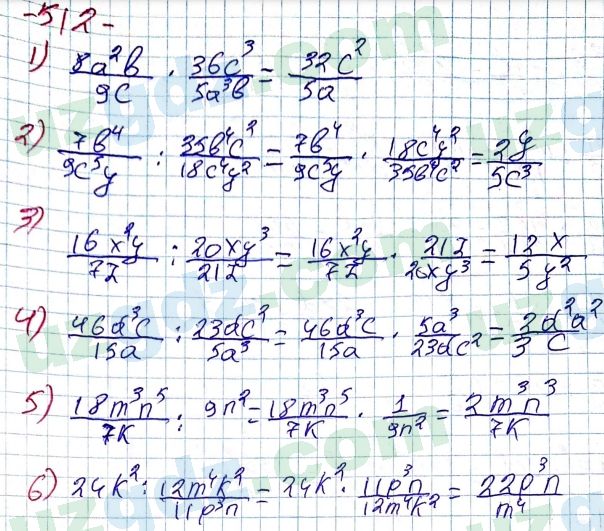 -512-
1) 8a²b/9c · 36c³/5a³b = 32c²/5a
2) 7b⁴/9c⁵y : 35b⁴c²/18c⁴y² = 7b⁴/9c⁵y · 18c⁴y²/35b⁴c² = 2y/5c³
3) 16x²y/7z : 20xy³/21z = 16x²y/7z · 21z/20xy³ = 12x/5y²
4) 46d³c/15a : 23dc²/5a³ = 46d³c/15a · 5a³/23dc² = 2d²a²/3c
5) 18m³n⁵/7k : 9n² = 18m³n⁵/7k · 1/9n² = 2m³n³/7k
6) 24k² : 12m⁴k²/11p³n = 24k² · 11p³n/12m⁴k² = 22p³n/m⁴